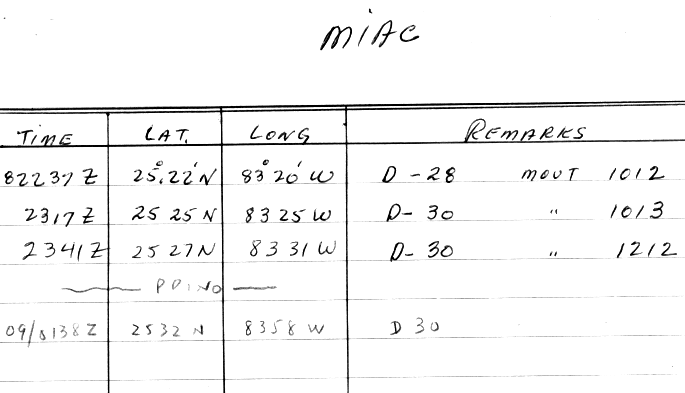 MIAC
TIME LAT. LONG REMARKS
82237Z 25°22'N 83°20'W D-28 MOVT 1012
2317Z 25 25N 83 25W D-30 " 1013
2341Z 25 27N 83 31W D-30 " 1212
09/0138Z 2532 N 8358 W D 30